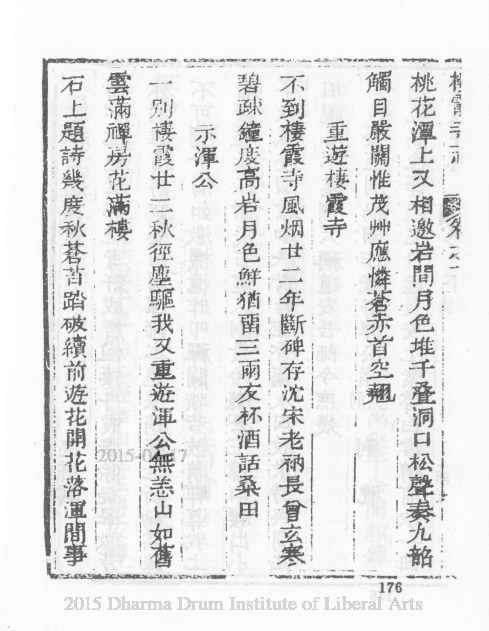 棲霞寺志
桃花潭上又相邀岩間月色堆千疊洞口松聲奏九韶
觸目嚴關惟茂艸應憐蒼赤首空翹
重遊棲霞寺
不到棲霞寺風烟廿二年斷碑存沈宋老衲長曾玄寒
碧疎鐘度高岩月色鮮猶畱三兩友杯酒話桑田
示渾公
一別棲霞廿二秋徑塵驅我又重遊渾公無恙山如舊
雲滿禪房花滿樓
石上題詩幾度秋蒼苔踏破續前遊花開花落渾閒事
2015-0 17
176
2015 Dharma Drum Institute of Liberal Arts